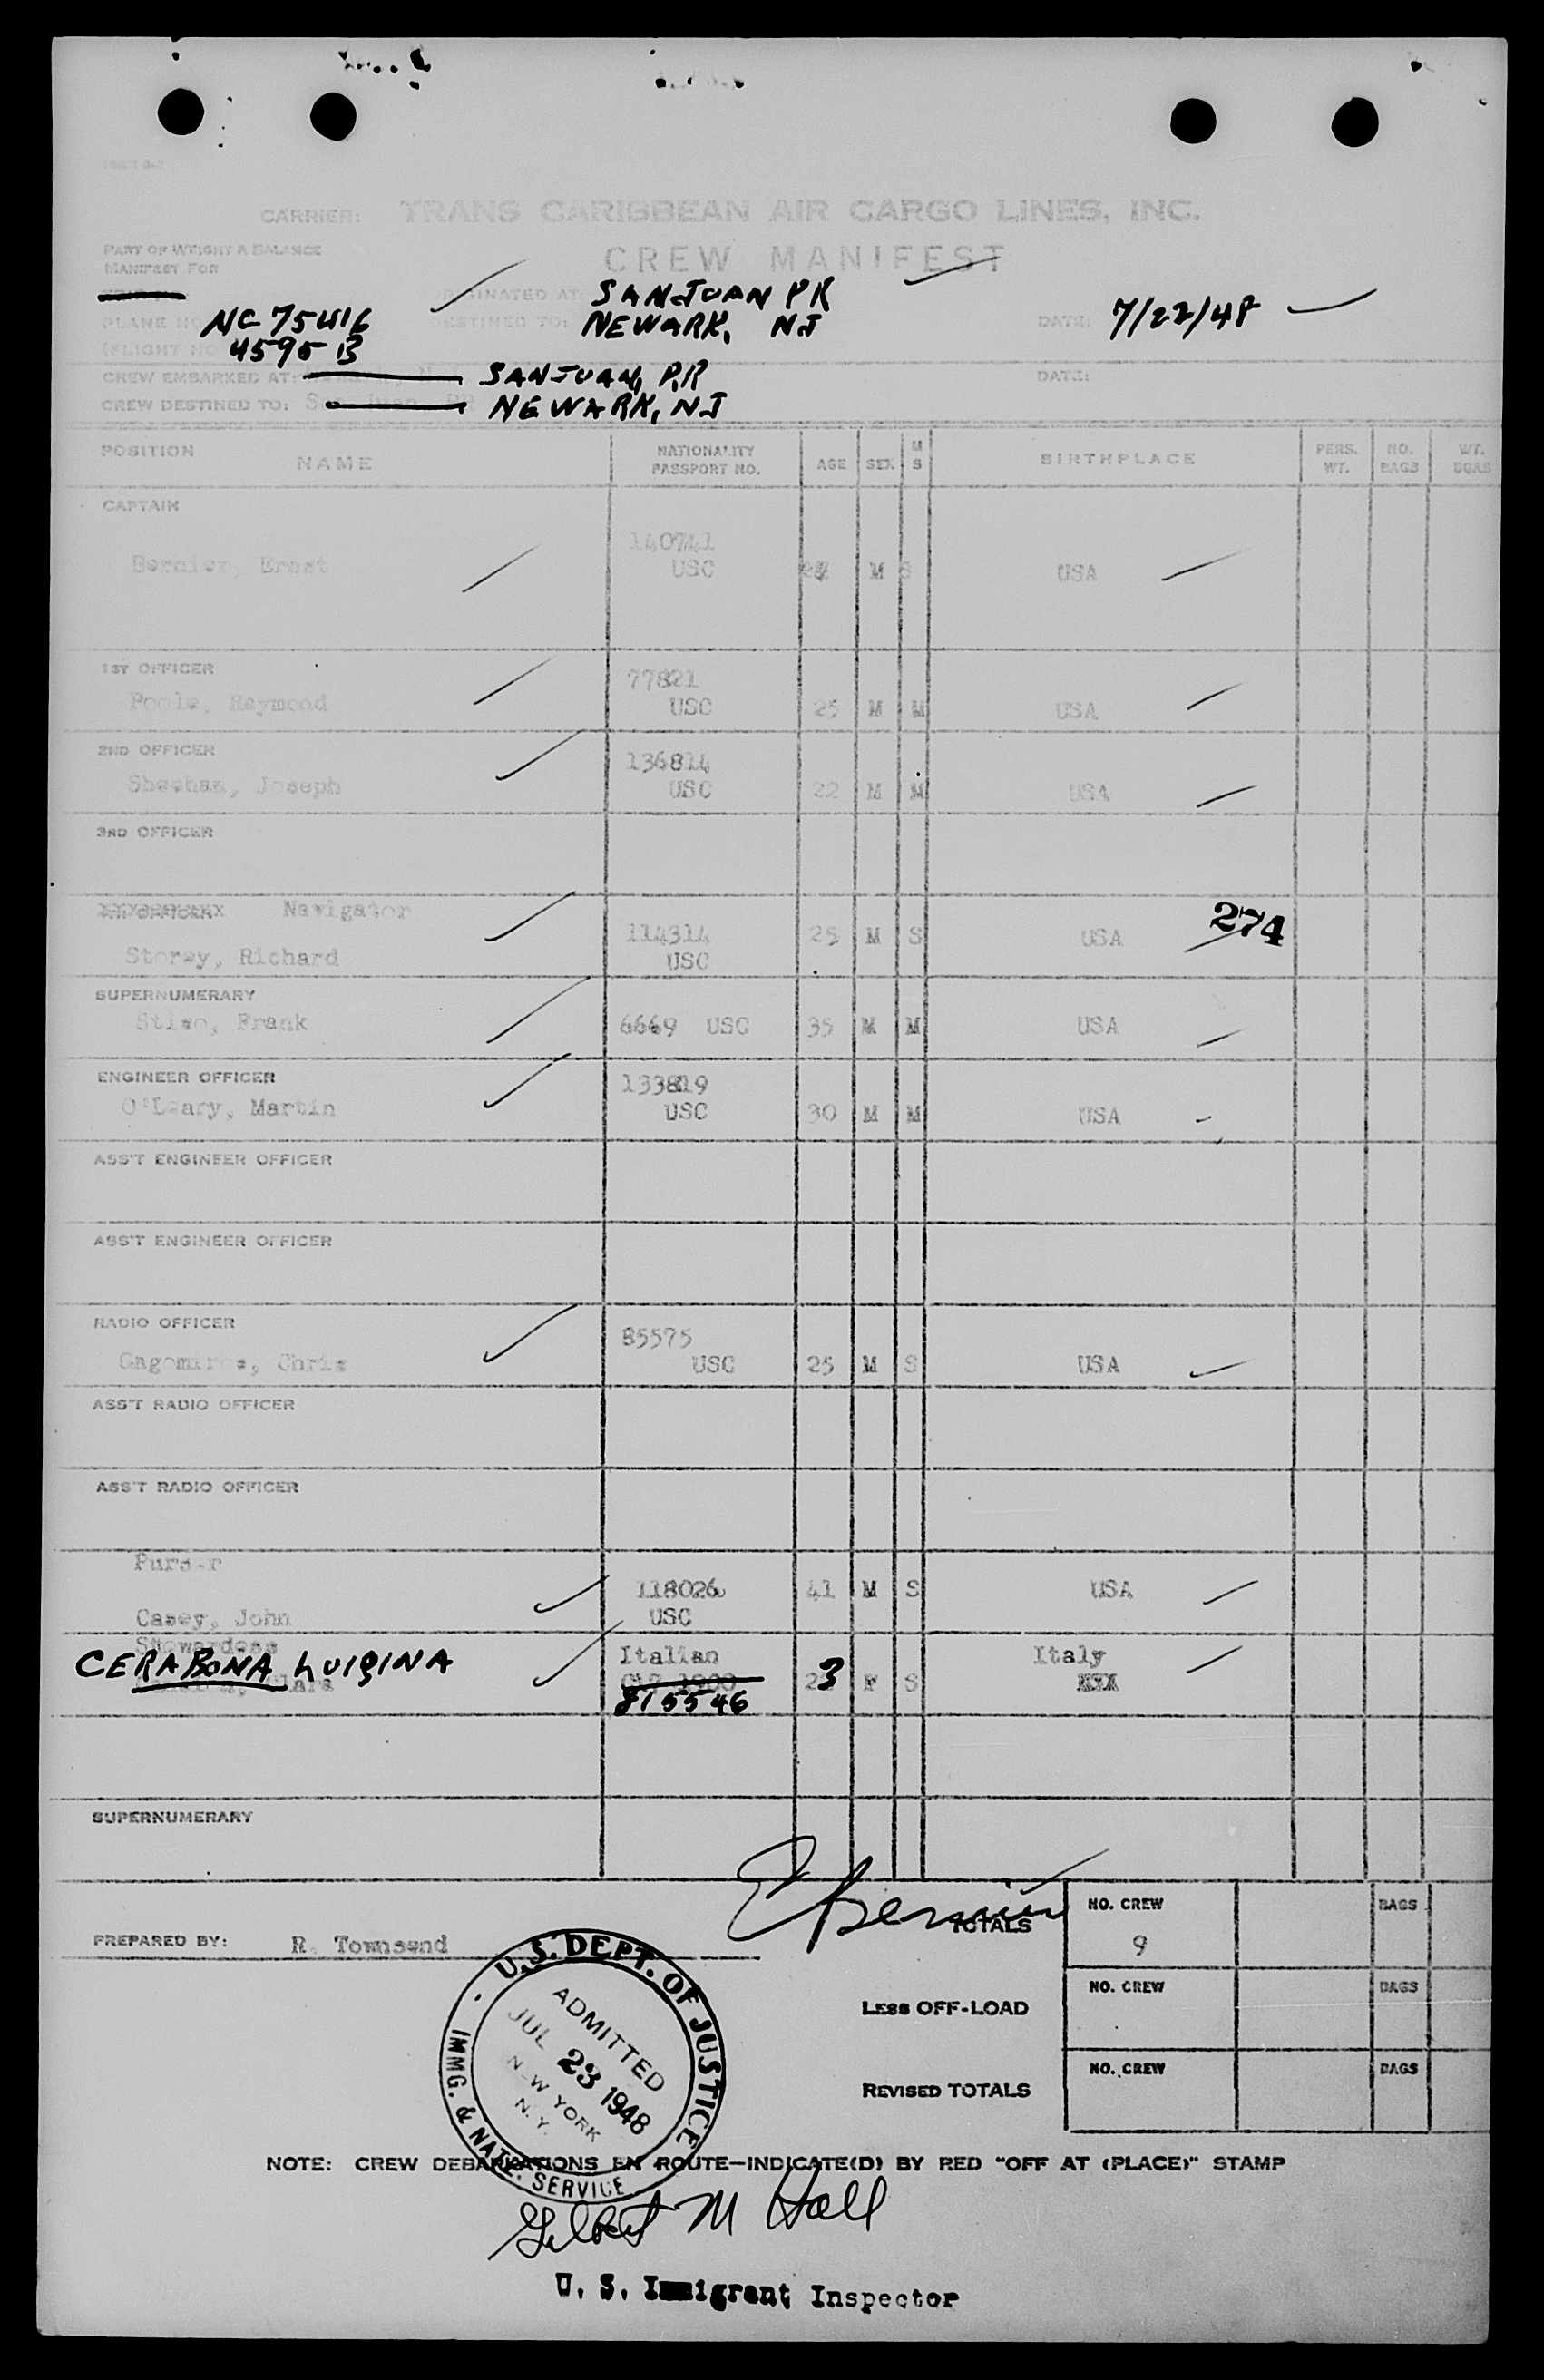 CARRIER: TRANS CARIBBEAN AIR CARGO LINES, INC.
PART OF WEIGHT & BALANCE
MANIFEST FOR
CREW MANIFEST
ORIGINATED AT: SAN JUAN PR
PLANE NO. NC 75416 DESTINED TO: NEWARK, NJ DATE: 7/22/48
(FLIGHT NO 4595 B
CREW EMBARKED AT: SAN JUAN, P.R DATE:
CREW DESTINED TO: San Juan, PR NEWARK, NJ
POSITION NAME NATIONALITY PASSPORT NO. AGE SEX M S BIRTHPLACE PERS. WT. NO. BAGS WT. BGAS
CAPTAIN
140741
Bernier, Ernst USC M S USA
1ST OFFICER
77821
Poole, Raymond USC 25 M M USA
2ND OFFICER
136814
Sheehan, Joseph USC 22 M M USA
3RD OFFICER
4TH OFFICER Navigator
274
114314 25 M S USA
Storey, Richard USC
SUPERNUMERARY
Frank 6669 USC 35 M M USA
ENGINEER OFFICER
133819
O'Leary, Martin USC 30 M M USA
ASS'T ENGINEER OFFICER
ASS'T ENGINEER OFFICER
RADIO OFFICER
85575
Chris USC 25 M S USA
ASS'T RADIO OFFICER
ASS'T RADIO OFFICER
Purser
118026 41 M S USA
Casey, John USC
Stewardess Italian Italy
CERABONA LUIGINA 3 F S
815546
SUPERNUMERARY
E Bernier
TOTALS NO. CREW 9 BAGS
PREPARED BY: R. Townsend
LESS OFF-LOAD NO. CREW BAGS
REVISED TOTALS NO. CREW BAGS
U.S. DEPT. OF JUSTICE
ADMITTED
JUL 23 1948
NEW YORK
N.Y.
IMMG. & NATZ. SERVICE
NOTE: CREW DEBARKATIONS EN ROUTE—INDICATE(D) BY RED "OFF AT (PLACE)" STAMP
Gilbert M Hall
U. S. Immigrant Inspector